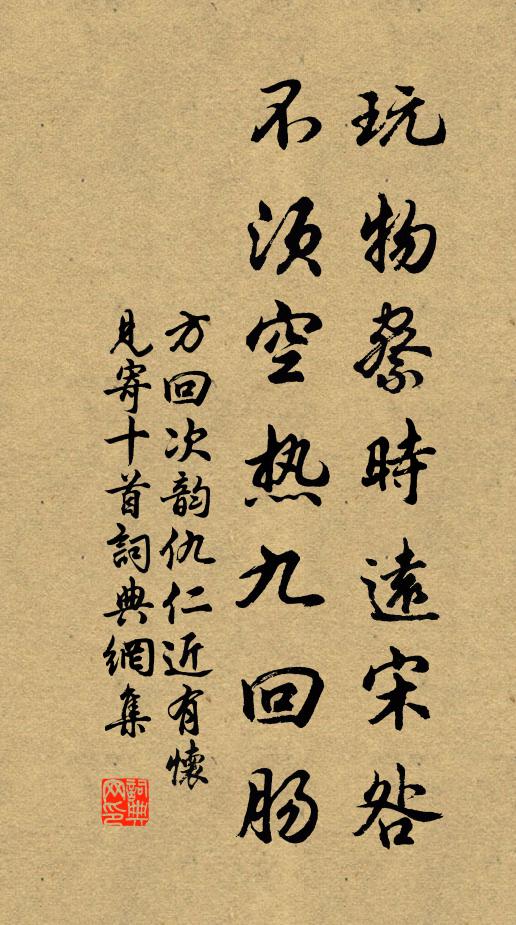 玩物喪時遠宋咎
不須空熱九回腸
方回次韵仇仁近有懷
見寄十首詞典網集
詞典网印